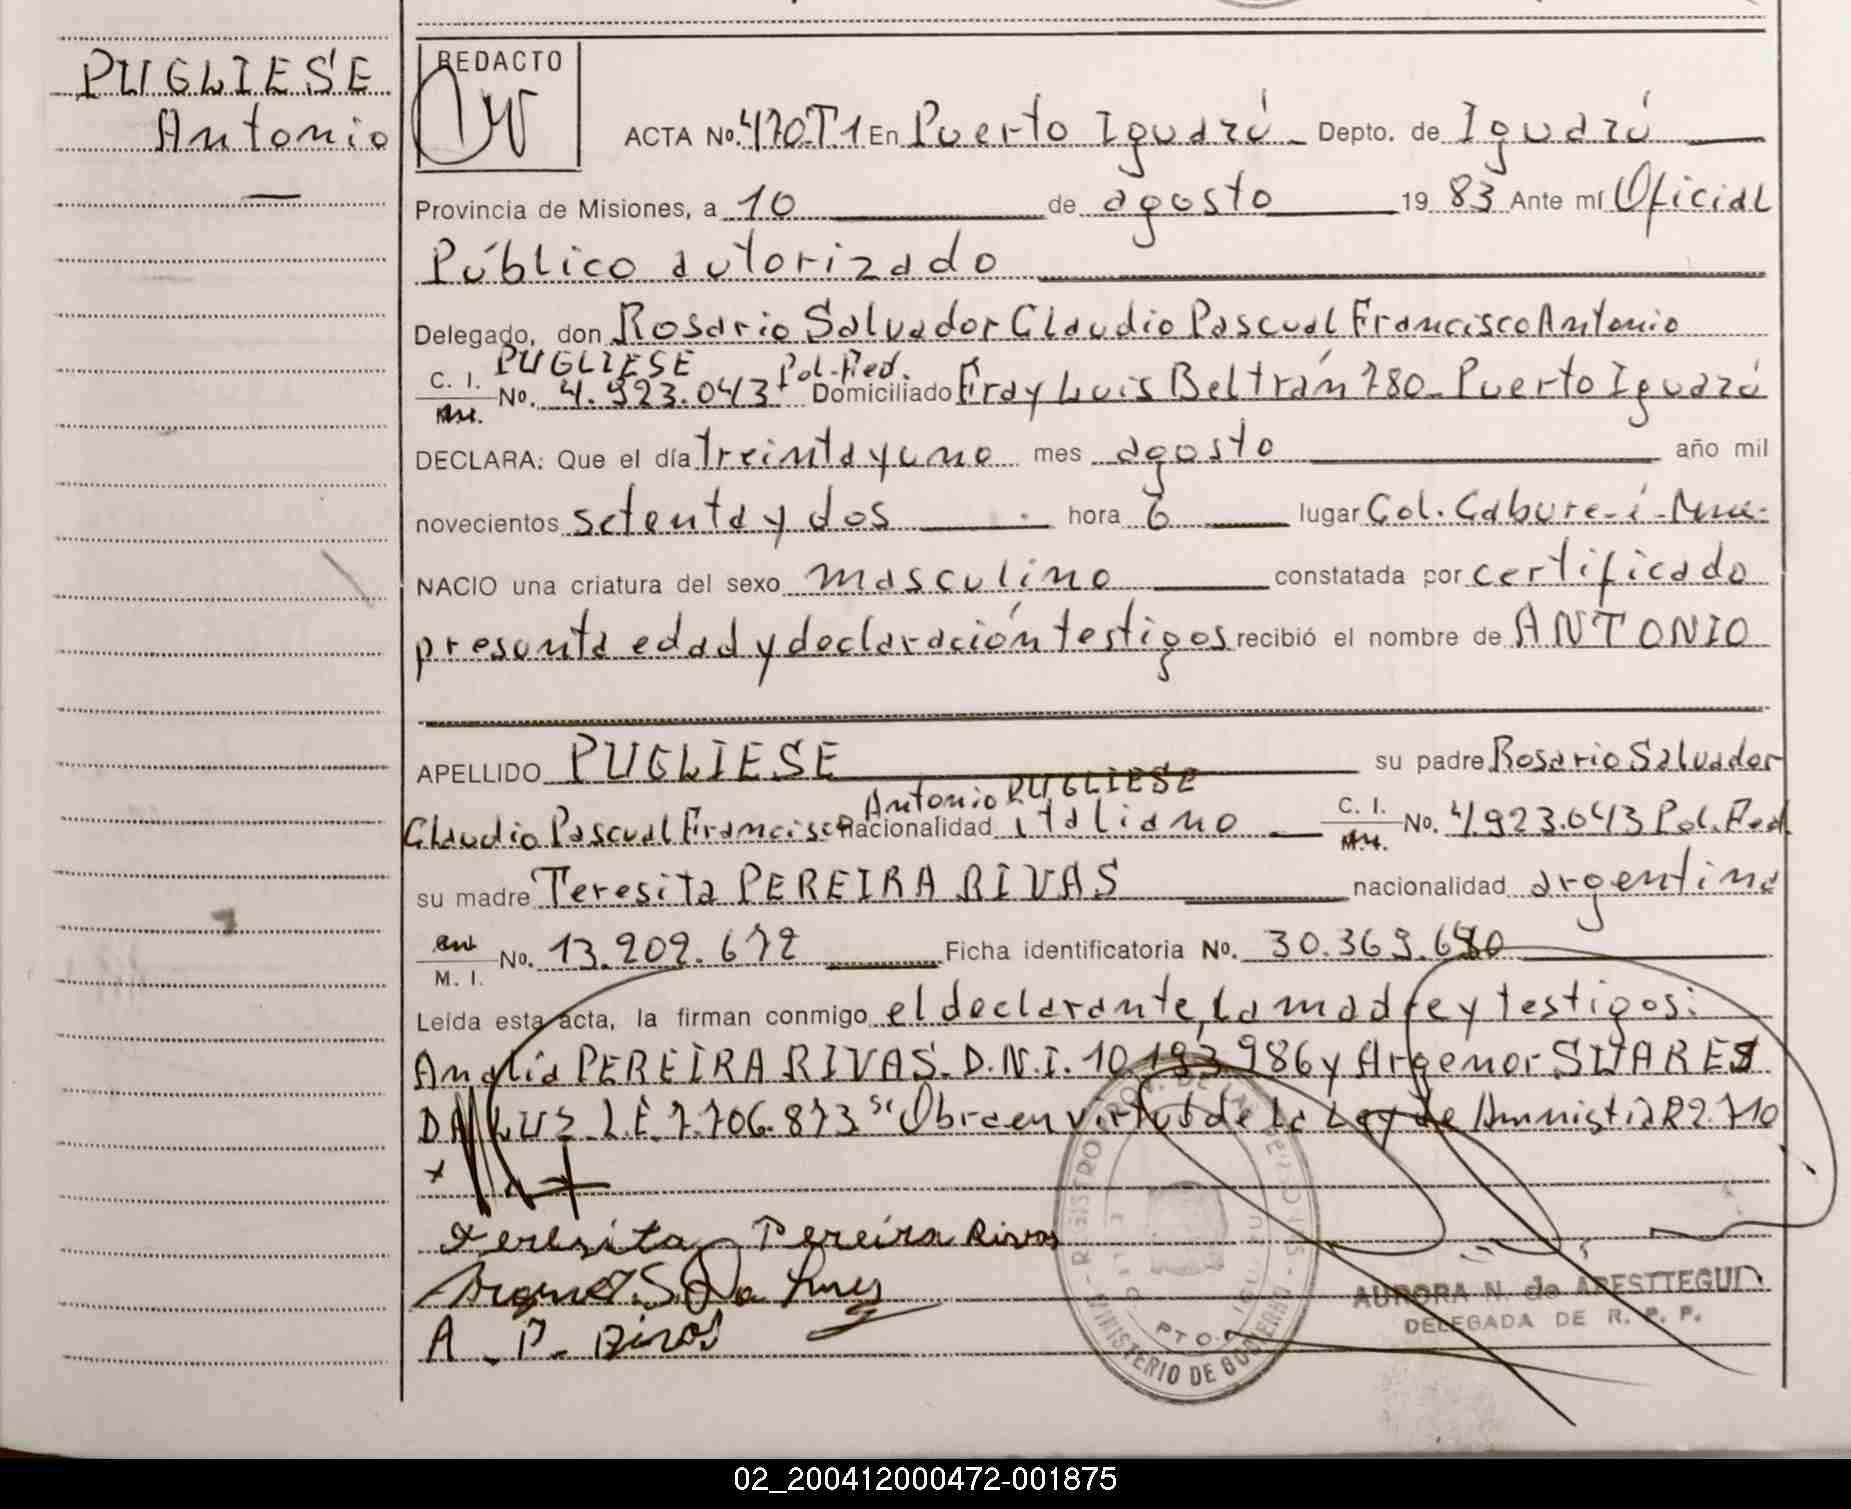 PUGLIESE
Antonio
REDACTO
ACTA No. 470.T.1 En Puerto Iguazú Depto. de Iguazú
Provincia de Misiones, a 10 de agosto 19 83 Ante mí Oficial
Público autorizado
Delegado, don Rosario Salvador Claudio Pascual Francisco Antonio
PUGLIESE
C. I. No. 4.923.043 Pol. Fed. Domiciliado Fray Luis Beltrán 780 - Puerto Iguazú
DECLARA: Que el día treinta y uno mes agosto año mil
novecientos setenta y dos hora 6 lugar Col. Cabure-í - Mnes.
NACIO una criatura del sexo masculino constatada por certificado
presunta edad y declaración testigos recibió el nombre de ANTONIO
APELLIDO PUGLIESE su padre Rosario Salvador
Claudio Pascual Francisco Antonio PUGLIESE nacionalidad italiano C. I. No. 4.923.043 Pol. Fed
su madre Teresita PEREIRA RIVAS nacionalidad argentina
M. I. No. 13.202.672 Ficha identificatoria No. 30.369.680
Leída esta acta, la firman conmigo el declarante, la madre y testigos:
Analia PEREIRA RIVAS. D.N.I. 10.193.986 y Argenor SUARES
DA LUZ L.E. 7.706.873 Obra en virtud de la Ley de Amnistía 22.710
Teresita Pereira Rivas
A. P. Rivas
REGISTRO PROV. DE LAS PERSONAS
MINISTERIO DE GOBIERNO
AURORA N. de ARESTTEGUI
DELEGADA DE R. P. P.
02_200412000472-001875